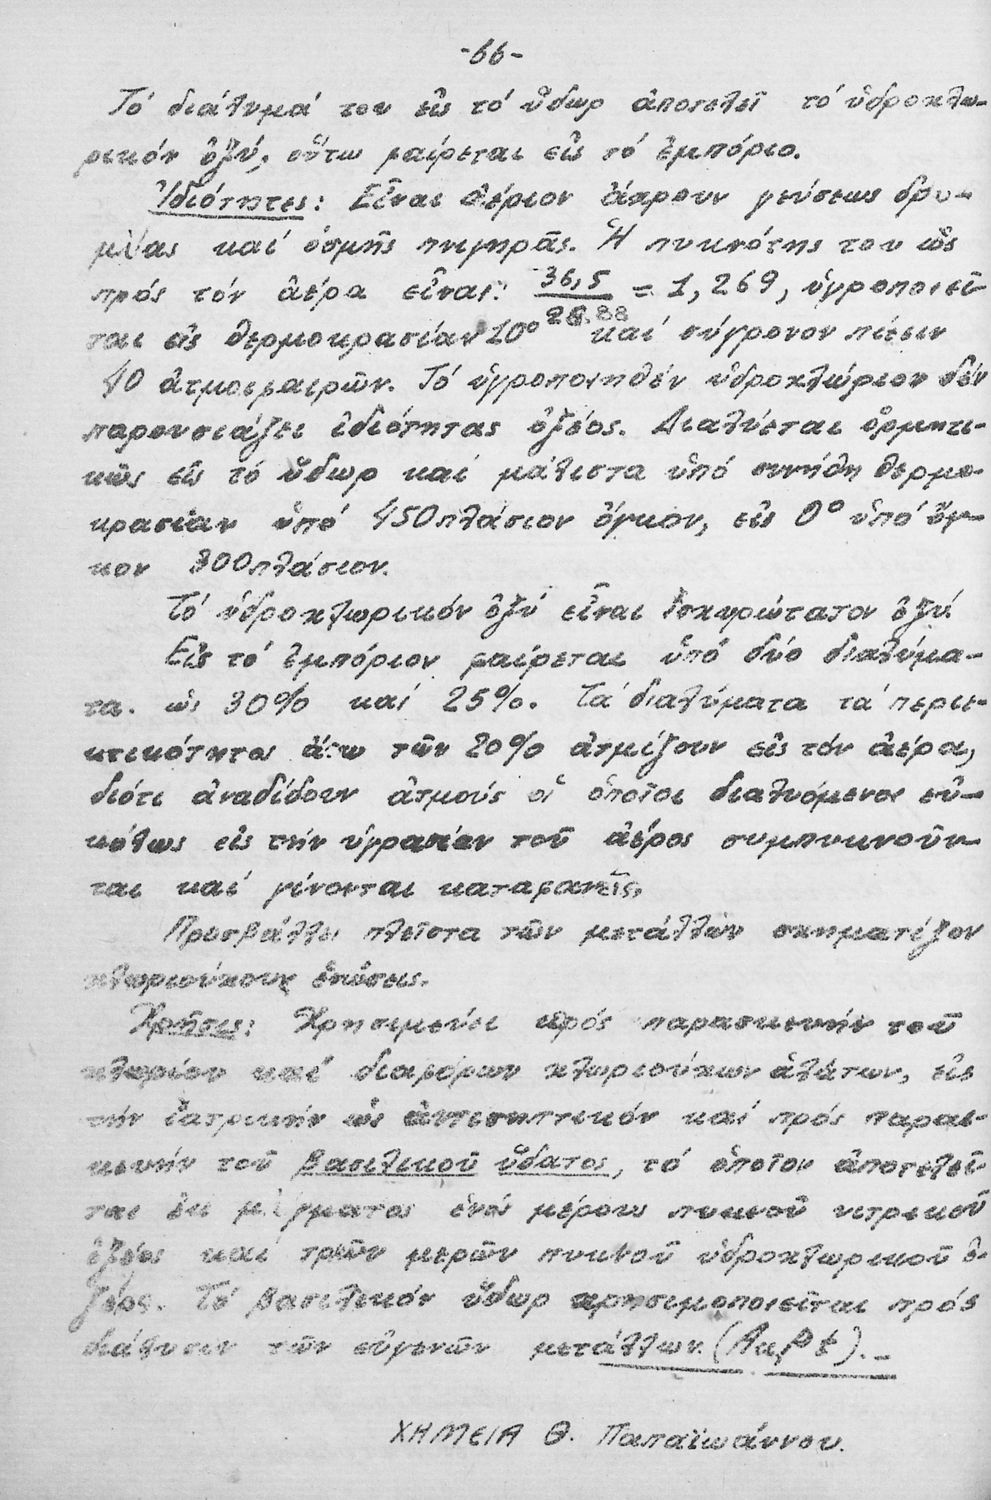 -66-
Τό διάλυμά του εἰς τό ὕδωρ ἀποτελεῖ τό ὑδροχλω-
ρικόν ὀξύ, οὕτω φαίρεται εἰς τό ἐμπόριο.
Ἰδιότητες: Εἶναι ἀέριον ἄχρουν γεύσεως δρυ-
μείας καί ὀσμῆς πνιγηρᾶς. Ἡ πυκνότης του ὡς
πρός τόν ἀέρα εἶναι: 36,5/28.88 = 1,269, ὑγροποιεῖ
ται εἰς θερμοκρασίαν 10° καί σύγχρονον πίεσιν
40 ἀτμοσφαιρῶν. Τό ὑγροποιηθέν ὑδροχλώριον δέν
παρουσιάζει ἰδιότητας ὀξέος. Διαλύεται ὁρμητι-
κῶς εἰς τό ὕδωρ καί μάλιστα ὑπό συνήθη θερμο-
κρασίαν ὑπό 450πλάσιον ὄγκον, εἰς 0° ὑπό ὄγ-
κον 300πλάσιον.
Τό ὑδροχλωρικόν ὀξύ εἶναι ἰσχυρώτατον ὀξύ.
Εἰς τό ἐμπόριον φαίρεται ὑπό δύο διαλύμα-
τα. ὡς 30% καί 25%. Τά διαλύματα τά περιε-
κτικότητος ἄνω τῶν 20% ἀτμίζουν εἰς τόν ἀέρα,
διότι ἀναδίδουν ἀτμούς οἱ ὁποῖοι διαλυόμενοι εὐ-
κόλως εἰς τήν ὑγρασίαν τοῦ ἀέρος συμπυκνοῦν-
ται καί γίνονται καταφανεῖς.
Προσβάλλει πλεῖστα τῶν μετάλλων σχηματίζον
χλωριούχους ἑνώσεις.
Χρῆσις: Χρησιμεύει πρός παρασκευήν τοῦ
χλωρίου καί διαφόρων χλωριούχων ἁλάτων, εἰς
τήν ἰατρικήν ὡς ἀντισηπτικόν καί πρός παρασ-
κευήν τοῦ βασιλικοῦ ὕδατος, τό ὁποῖον ἀποτελεῖ
ται ἐκ μίγματος ἑνός μέρους πυκνοῦ νιτρικοῦ
ὀξέος καί τριῶν μερῶν πυκνοῦ ὑδροχλωρικοῦ ὀ-
ξέος. Τό βασιλικόν ὕδωρ χρησιμοποιεῖται πρός
διάλυσιν τῶν εὐγενῶν μετάλλων (Au, Pt).-
ΧΗΜΕΙΑ Θ. Παπαϊωάννου.